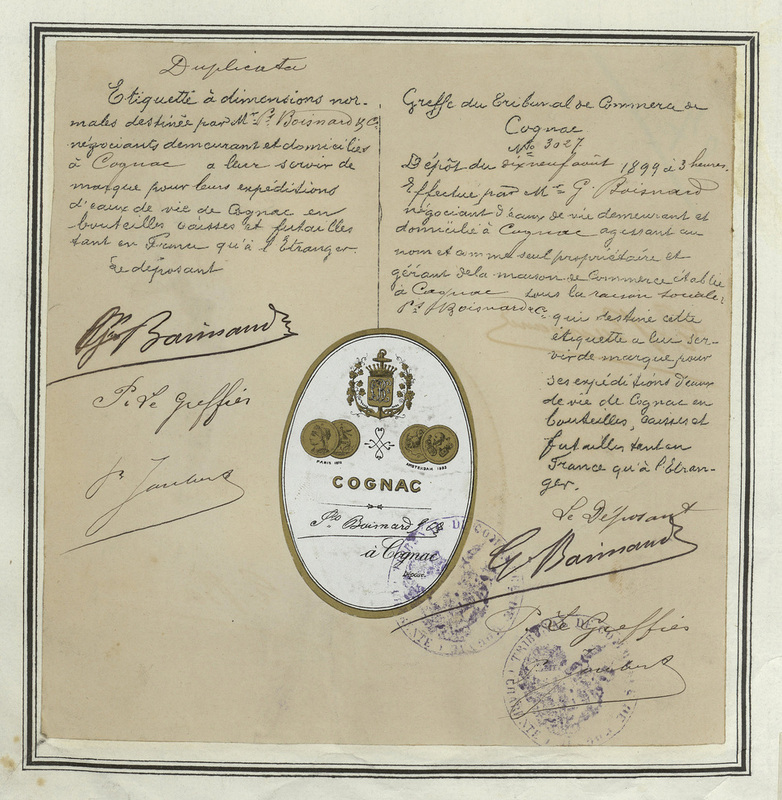 Duplicata
Etiquette à dimensions nor-
males destinée par Mrs Pre Boisnard & Cie
négociants demeurant et domiciliés
à Cognac a leur servir de
marque pour leurs expéditions
d'eaux de vie de Cognac en
bouteilles caisses et futailles
tant en France qu'à l'Etranger.
Le déposant
Boisnard
P. Le Greffier
Joubert
Greffe du Tribunal de Commerce de
Cognac
No 3027
Dépôt du dix neuf août 1899 à 3 heures.
Effectué par Mr G. Boisnard
négociant d'eaux de vie demeurant et
domicilié à Cognac agissant au
nom et comme seul propriétaire et
gérant de la maison de Commerce établie
à Cognac sous la raison sociale:
Pre Boisnard & Cie qui destine cette
étiquette a leur ser-
vir de marque pour
ses expéditions d'eaux
de vie de Cognac en
bouteilles, caisses et
futailles tant en
France qu'à l'Etran-
ger.
Le Déposant
G. Boisnard
P. Le Greffier
Joubert
PARIS 1878
AMSTERDAM 1883
COGNAC
Pre Boisnard & Co
à Cognac
Déposé
TRIBUNAL DE COMMERCE DE COGNAC
CHARENTE